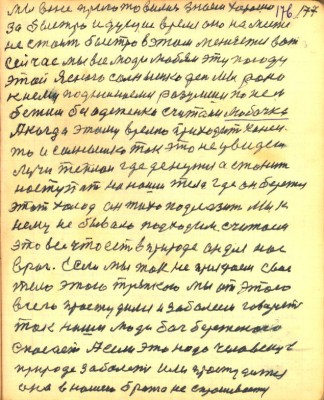 мы они приготовились знаем хорошо 176 177
За быстро идущие время оно на месте
не стоит быстро в этом меняется вот
сейчас мы все люди любим эту погоду
этой ясного солнышко ден мы рано
к нему поднимаемся разумиши по нем
бежим без одеженки считаем Мабочка
А когда этому время приходит конец
то и солнышка так это не увидем
лучи теплои где денутся а станит
наступат на наши тела где он бережу
этот холод он тихо подлезит мы к
нему не бывало подходим считаем
это все что есть в природе он для нас
враг. Если мы так не придаем свое
тело этого тряпкою мы от этого
всего простудимся и заболеем говорят
так наши люди бог бережоного
спасает А если это надо человеку в
природе заболеть или простудится
она в нашего брата не спрашивает